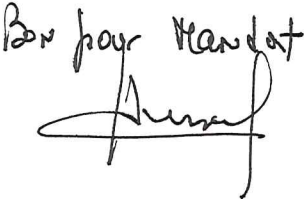 Bon pour Mandat